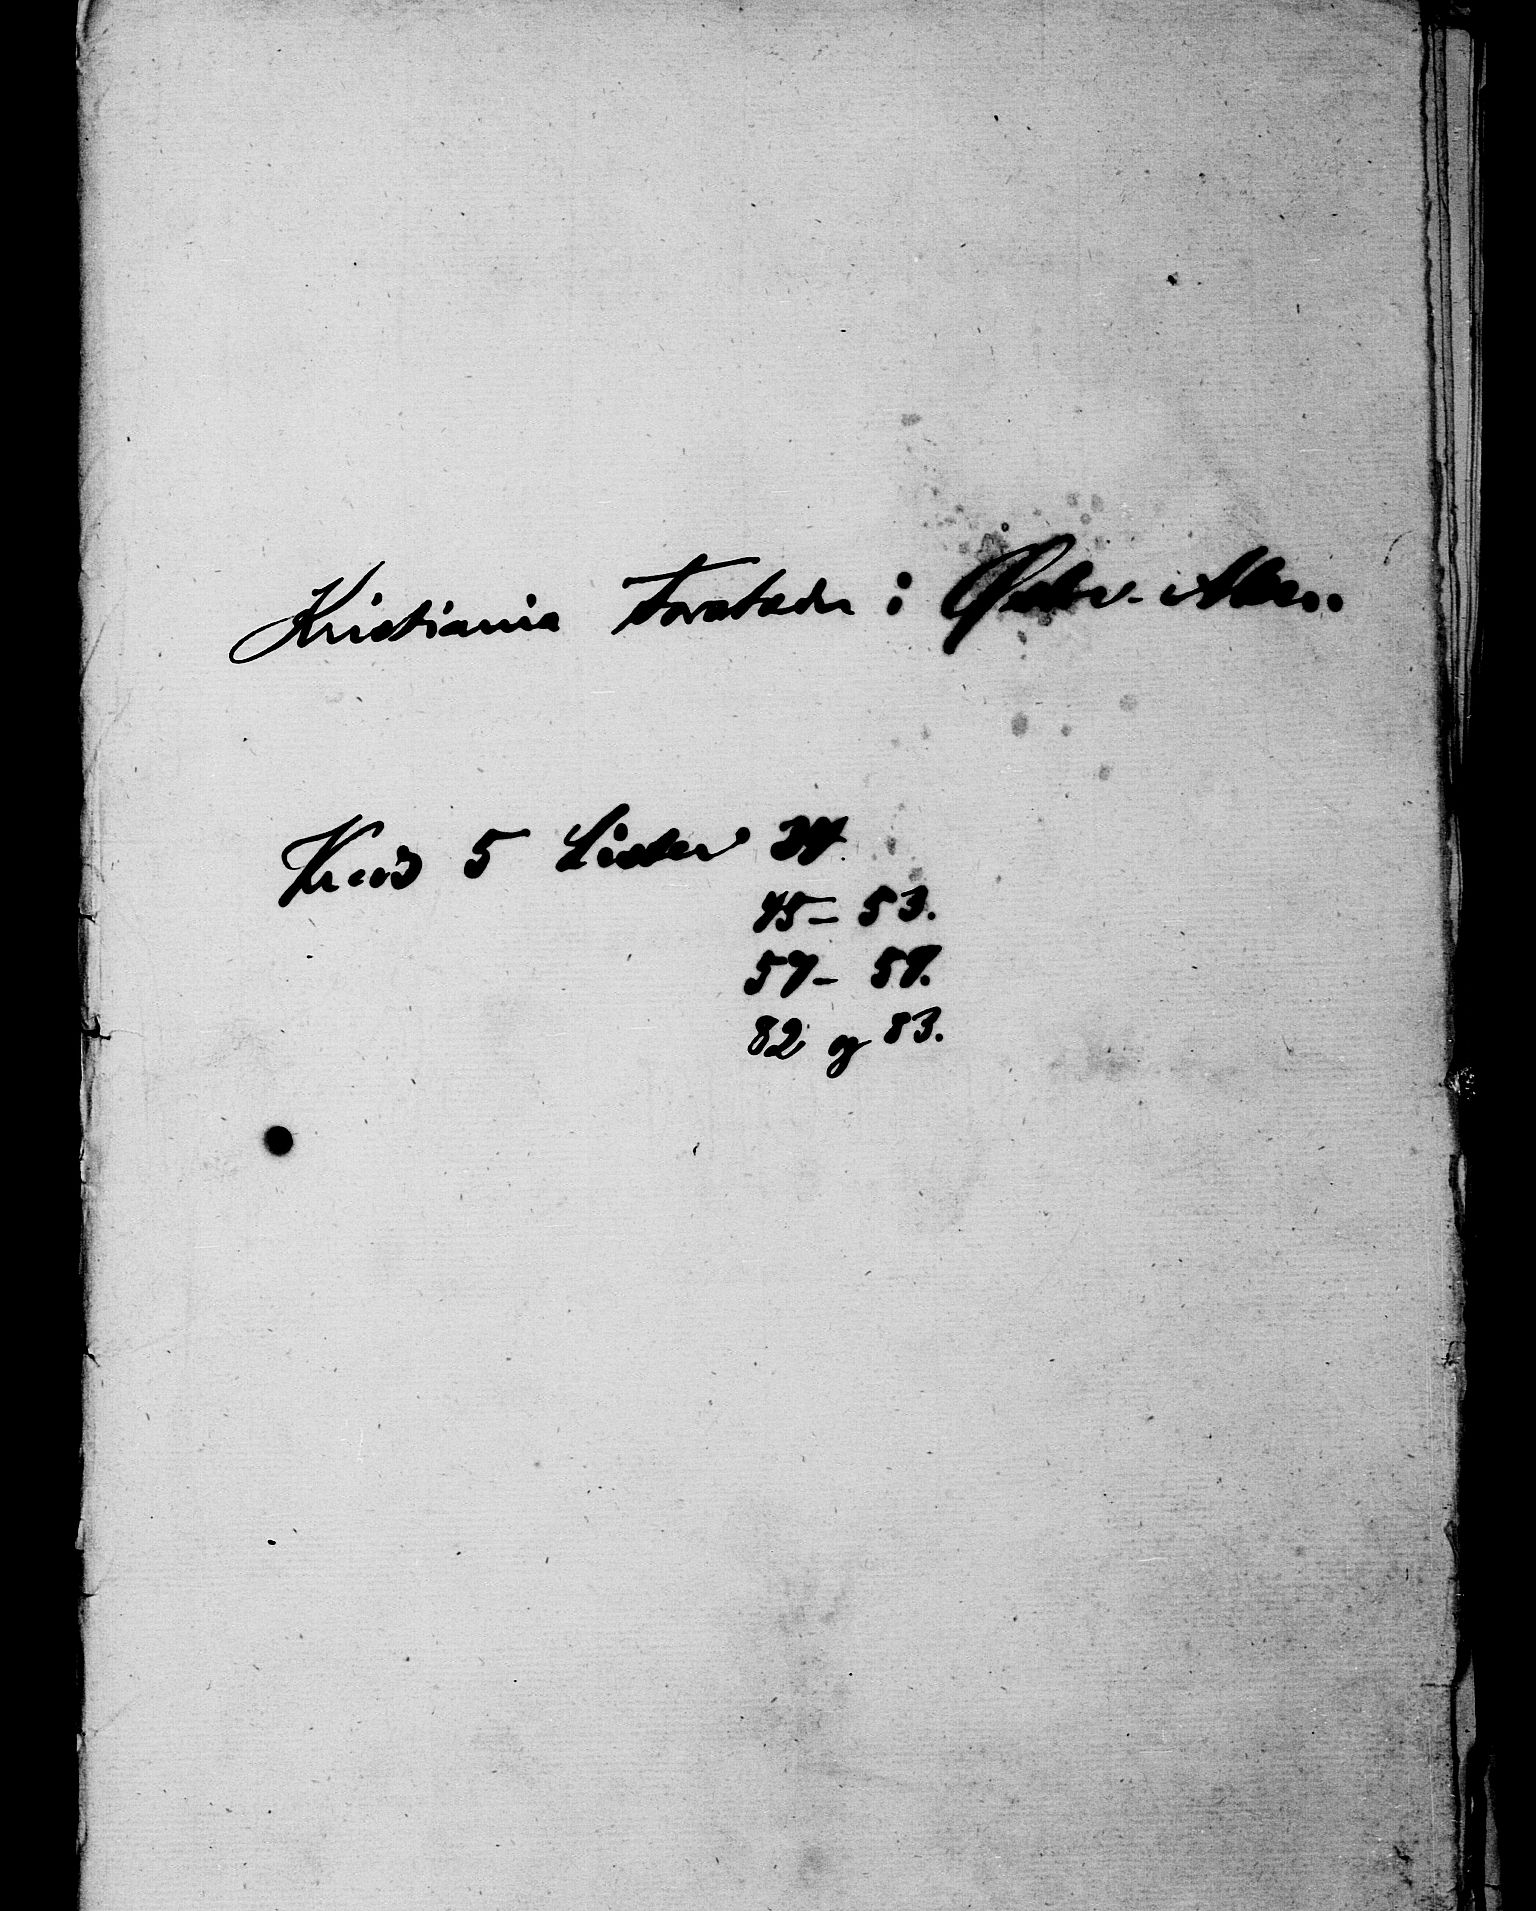 Kristiania Forstæder : Østre Aker.
Kreds 5 Lister 34
45 - 53.
57 - 59.
82 og 83.